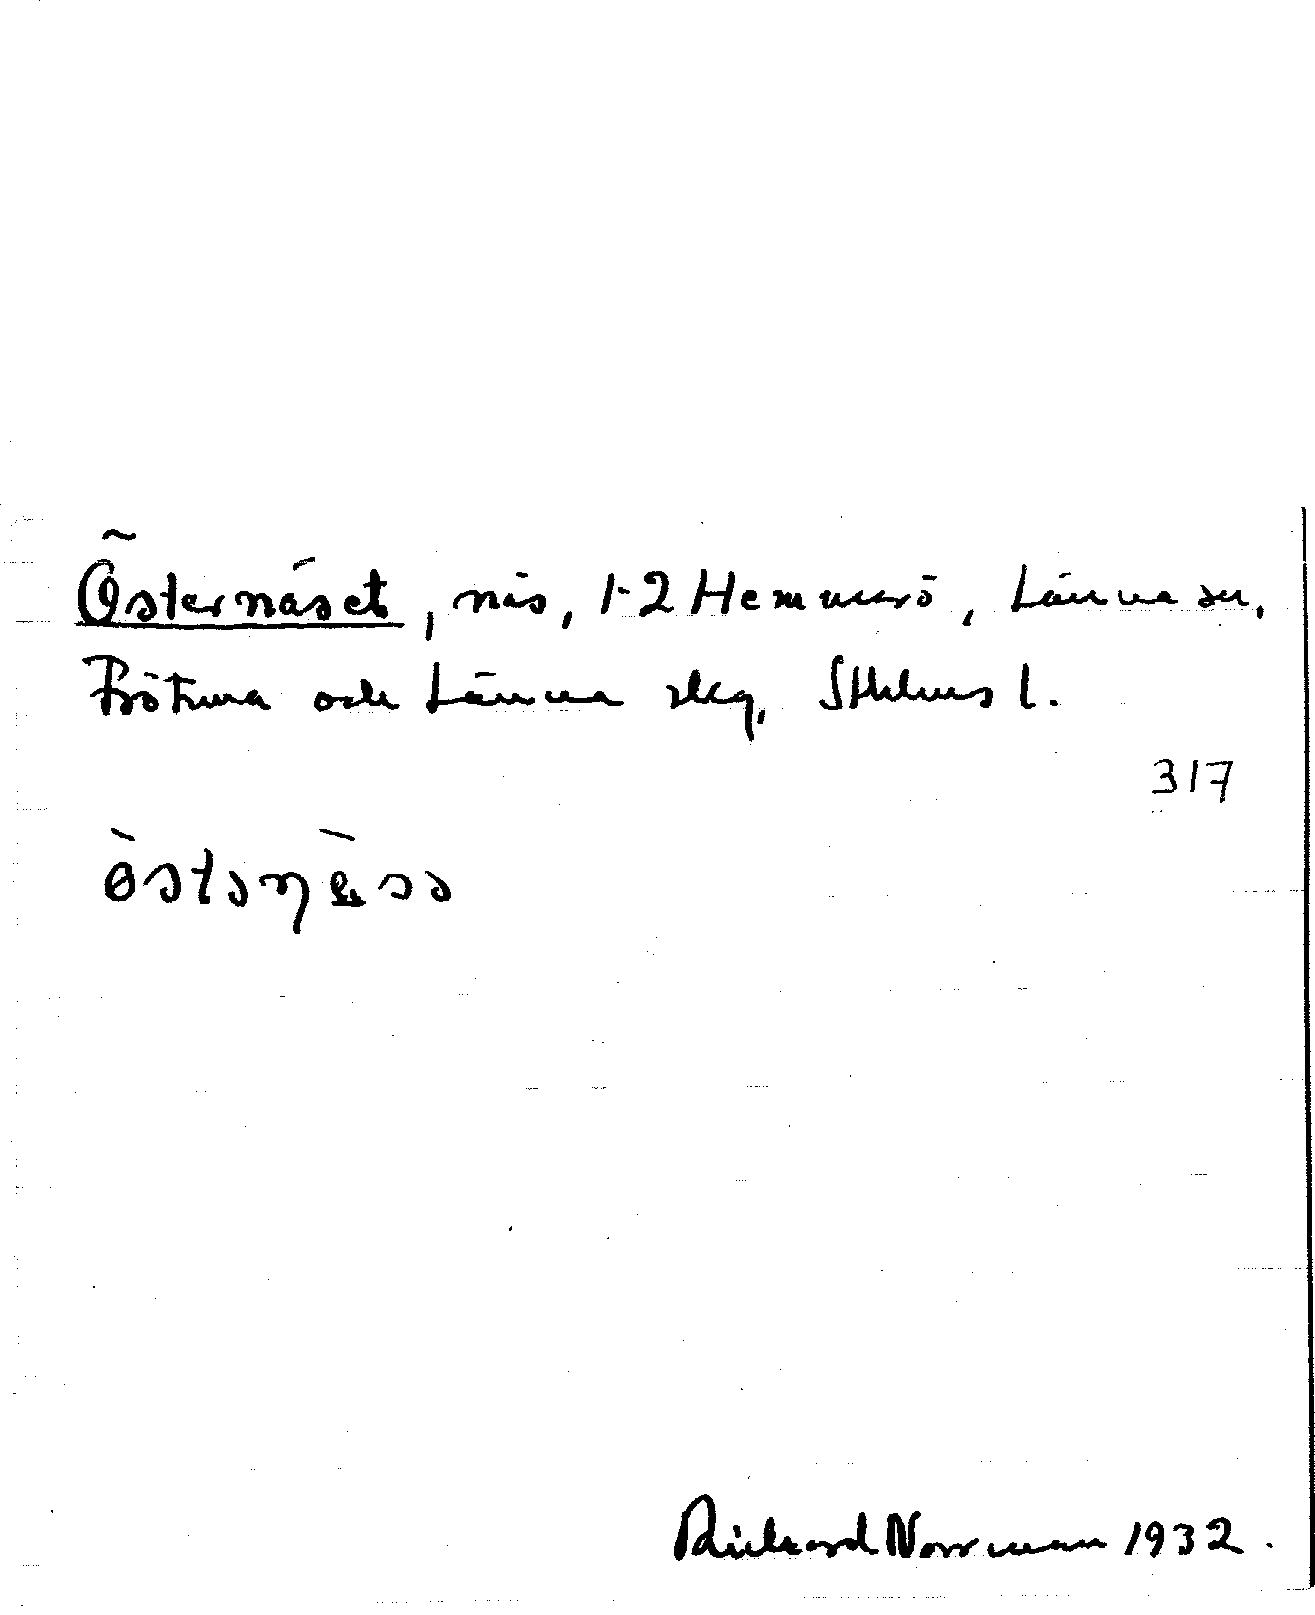 Östernäset, näs, 1-2 Hemmarö, Länna sn,
Frötuna och Länna skg, Sthlms l.
317
òstənὲsə
Rickard Norrman 1932.